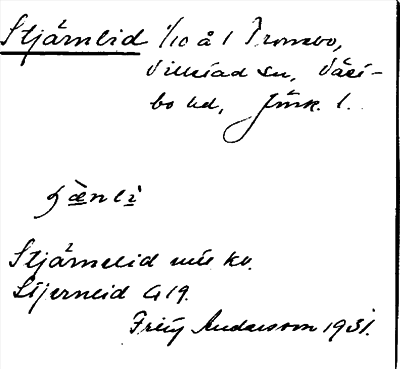 Stjärnlid 1/10 å 1 Prombo,
Villstad sn, Väst-
bo hd, Jönk. l.
ʃænli
Stjärnelid
Stjernlid G 19.
Andersson 1931.